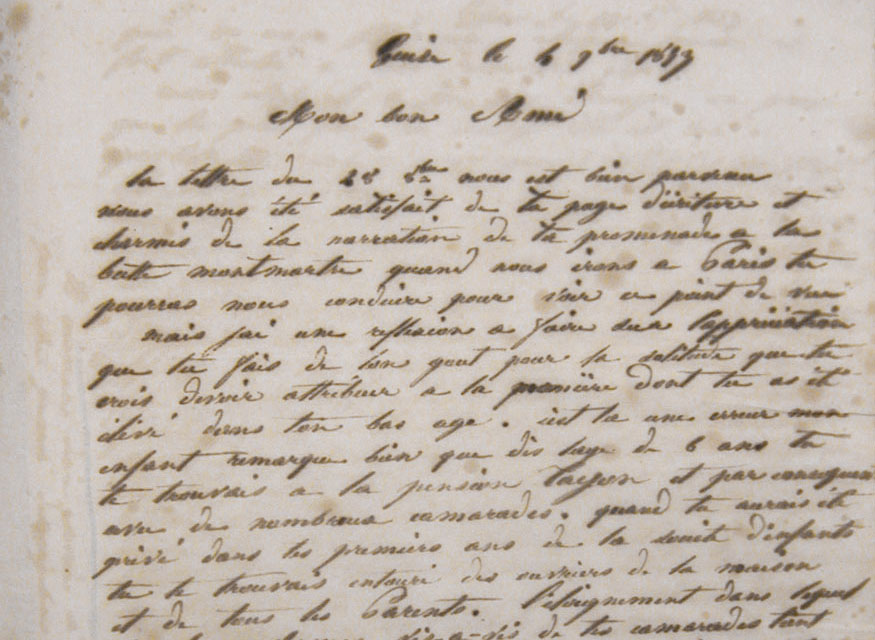 Guise le 6 9bre 1853
Mon bon Ami
ta lettre du 28 8bre nous est bien parvenu
nous avons été satisfait de ta page d'écriture et
charmés de la narration de ta promenade a la
butte montmartre quand nous irons a Paris tu
pourras nous conduire pour voir ce point de vue
mais j'ai une reflexion a faire sur l'appréciation
que tu fais de ton gout pour la solitude que tu
crois devoir attribuer a la manière dont tu as été
élevé dans ton bas age. c'est la une erreur mon
enfant remarque bien que dès l'age de 6 ans tu
te trouvais a la pension et par consequent
avec de nombreux camarades. quand tu aurais été
privé dans tes premiers ans de la société d'enfants
tu te trouvais entouré des ouvriers de la maison
et de tous tes Parents. l'éloignement dans lequel
vis-a-vis de tes camarades tant